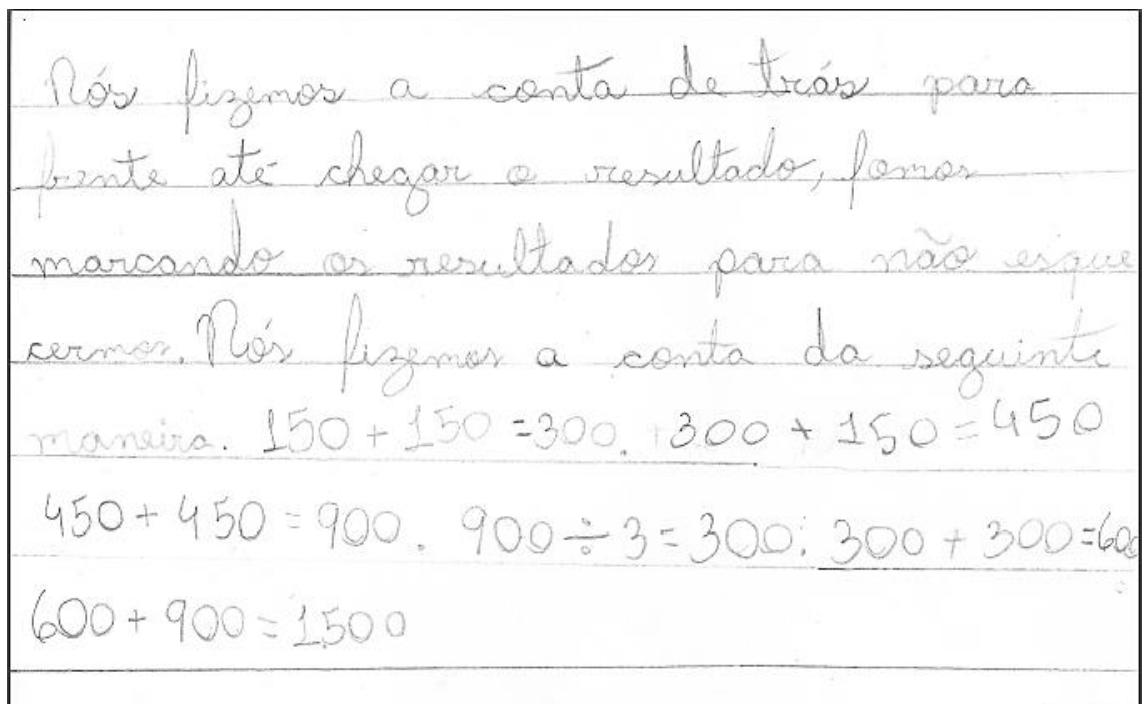 Nós fizemos a conta de trás para
frente até chegar o resultado, fomos
marcando os resultados para não esque
cermos. Nós fizemos a conta da seguinte
maneira. 150 + 150 = 300. 300 + 150 = 450
450 + 450 = 900. 900 ÷ 3 = 300. 300 + 300 = 600
600 + 900 = 1500